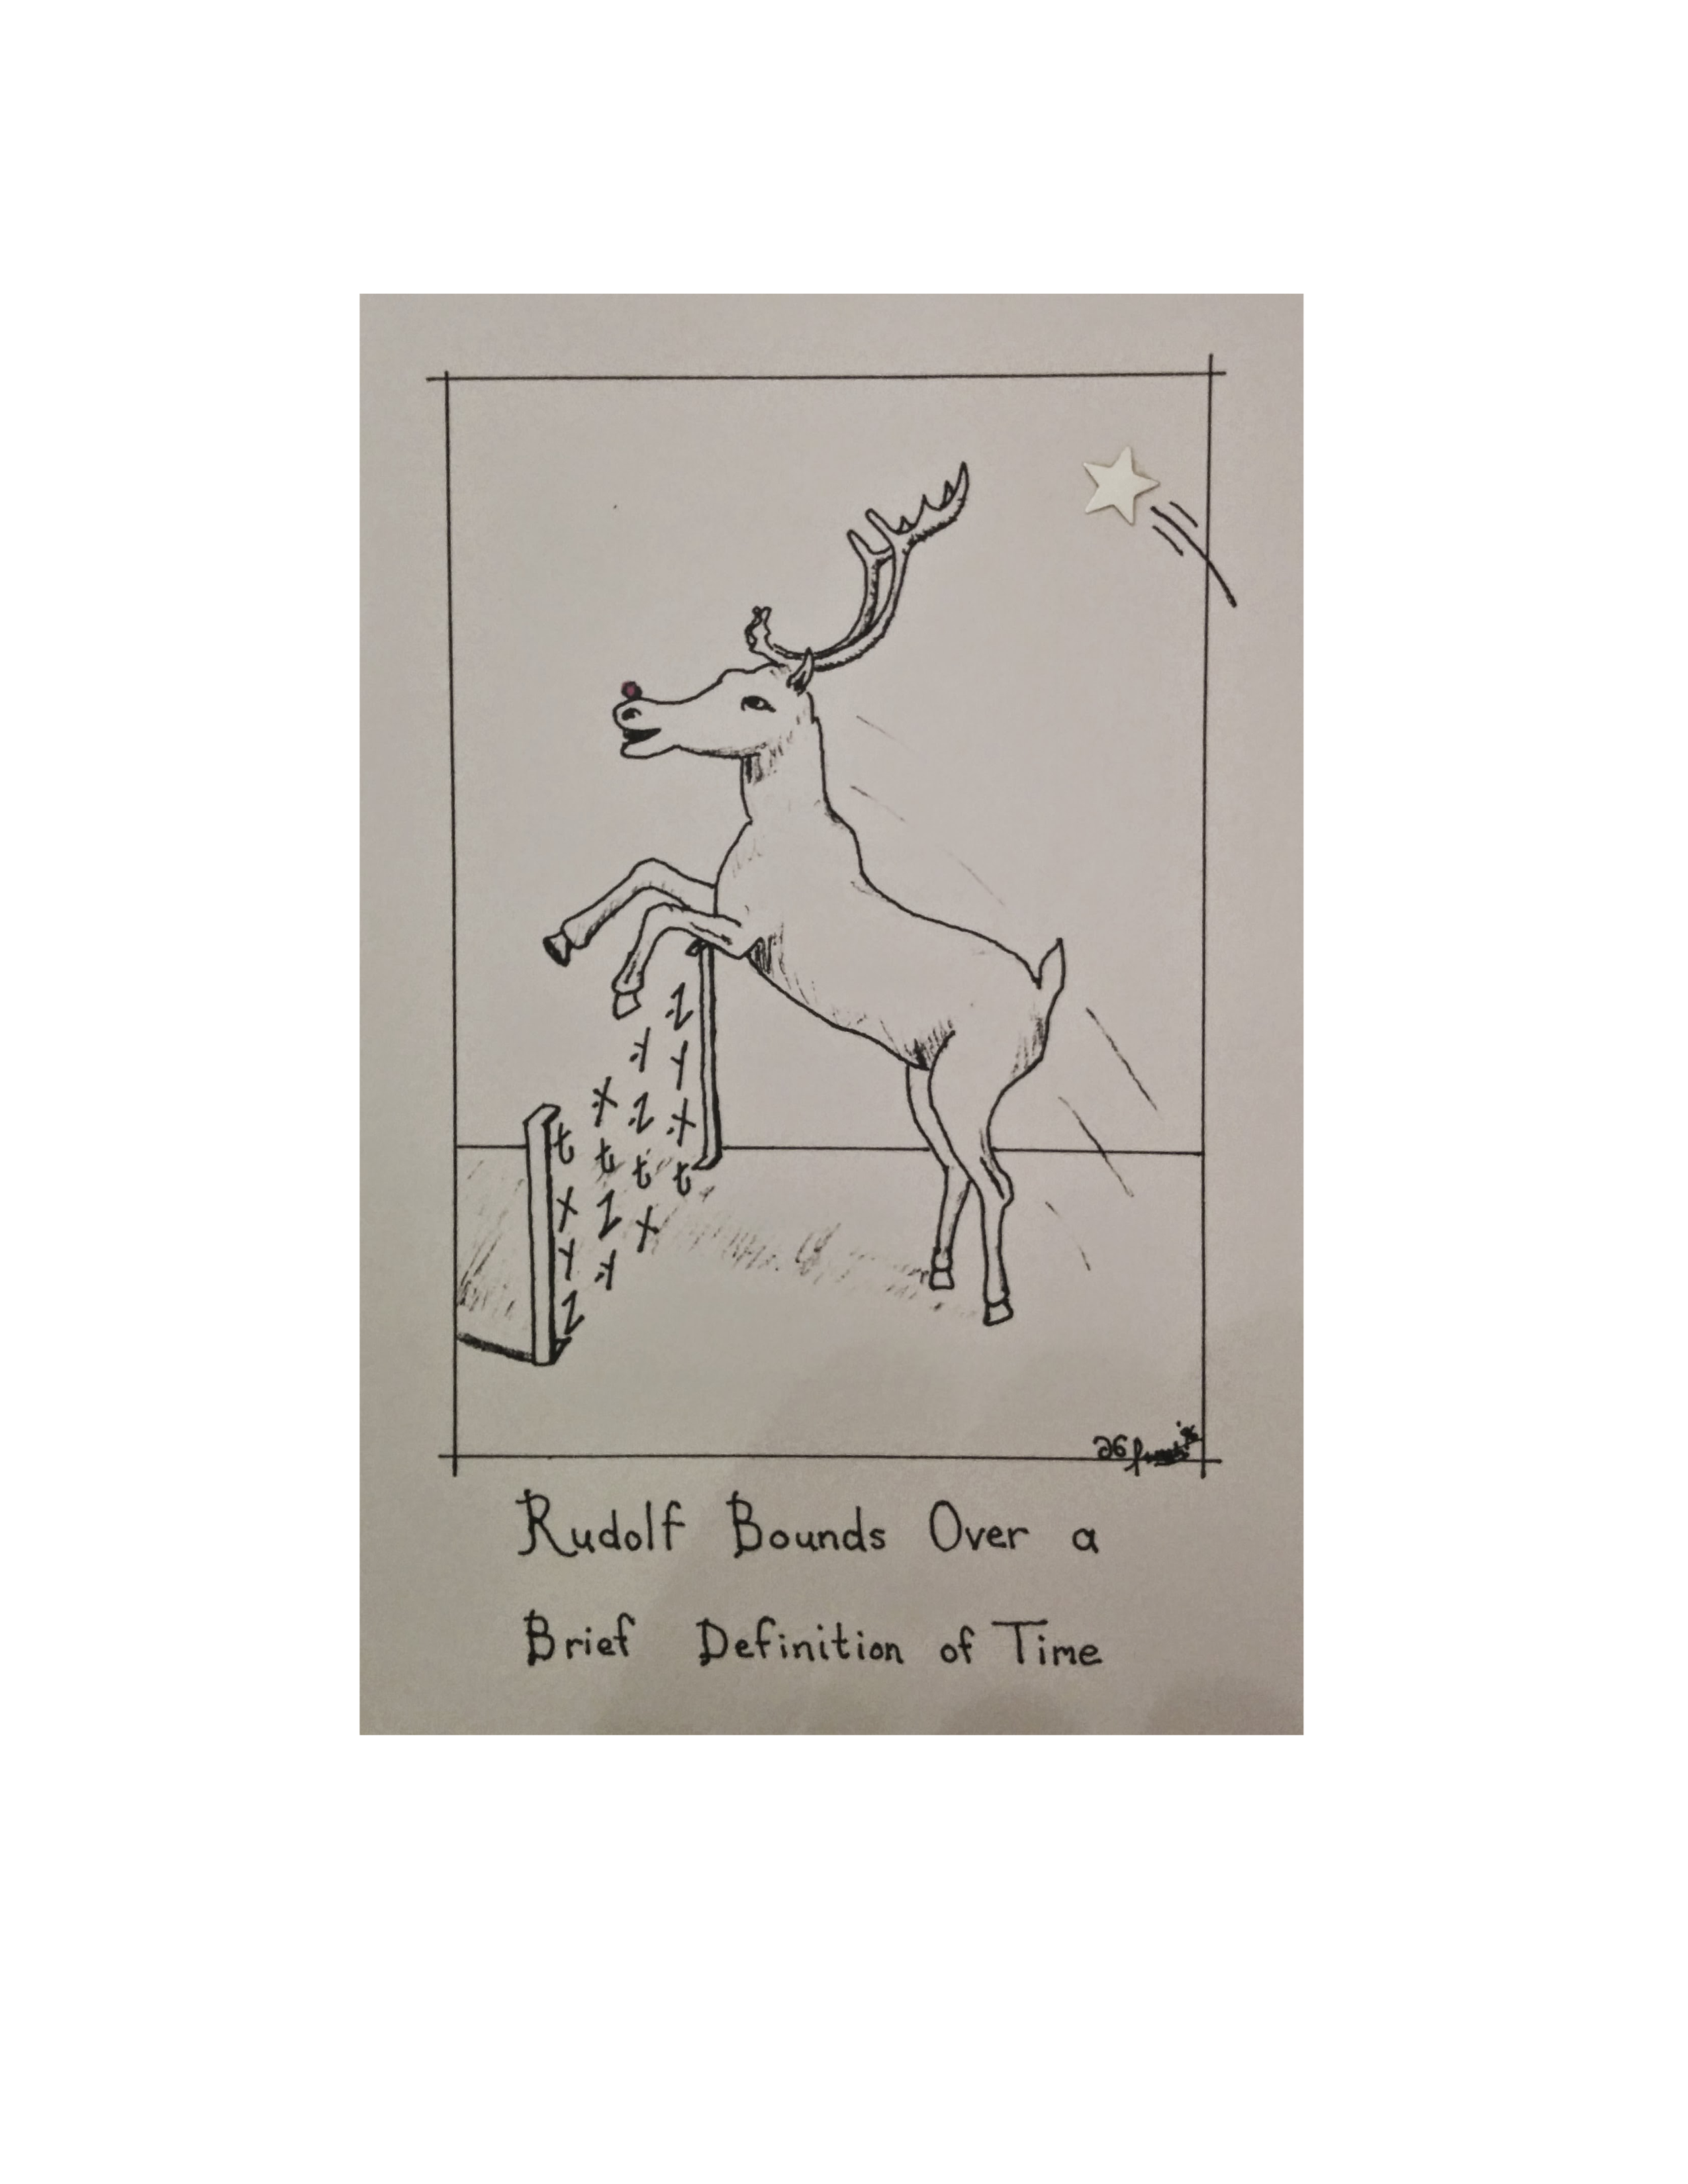 t X Y Z
X t Z Y
Y Z t X
Z Y X t
Rudolf Bounds Over a
Brief Definition of Time